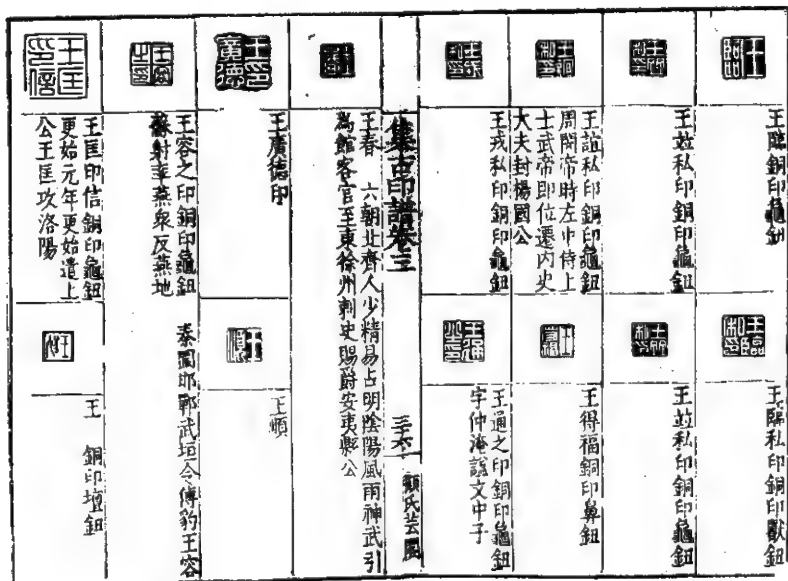 王臨
王臨銅印龜鈕
王臨私印
王臨私印銅印獸鈕
王竝私印銅印龜鈕
王竝私印銅印龜鈕
王誼私印銅印龜鈕
周閔帝時左中侍上
士武帝即位遷內史
大夫封揚國公
王得福銅印鼻鈕
王戎私印銅印龜鈕
王通之印
王通之印銅印龜鈕
字仲淹謚文中子
集古印譜卷三
三六
顧氏芸閣
王春 六朝北齊人少精易占明陰陽風雨神武引
為館客官至東徐州刺史賜爵安夷縣公
王印廣德
王廣德印
王順
王容之印
王容之印銅印龜鈕 秦圍邯鄲武垣令傅豹王容
蘇射率燕衆反燕地
王匡印信
王匡印信銅印龜鈕
更始元年更始遣上
公王匡攻洛陽
王 銅印壇鈕